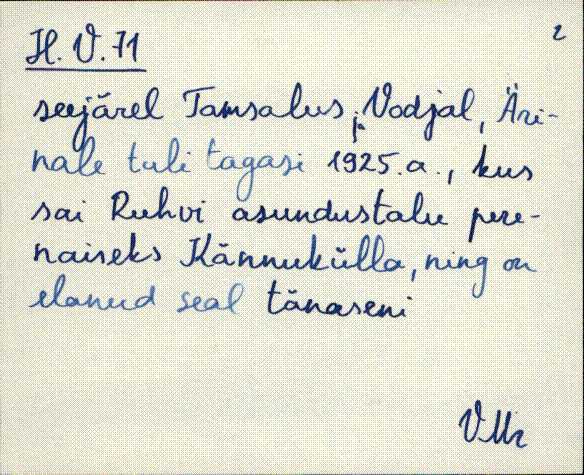 H. V. 71
2
seejärel Tamsalus, Vodjal, Äri-
nale tuli tagasi 1925. a., kus
sai Ruhvi asundustalu pere-
naiseks Kännukülla, ning on
elanud seal tänaseni